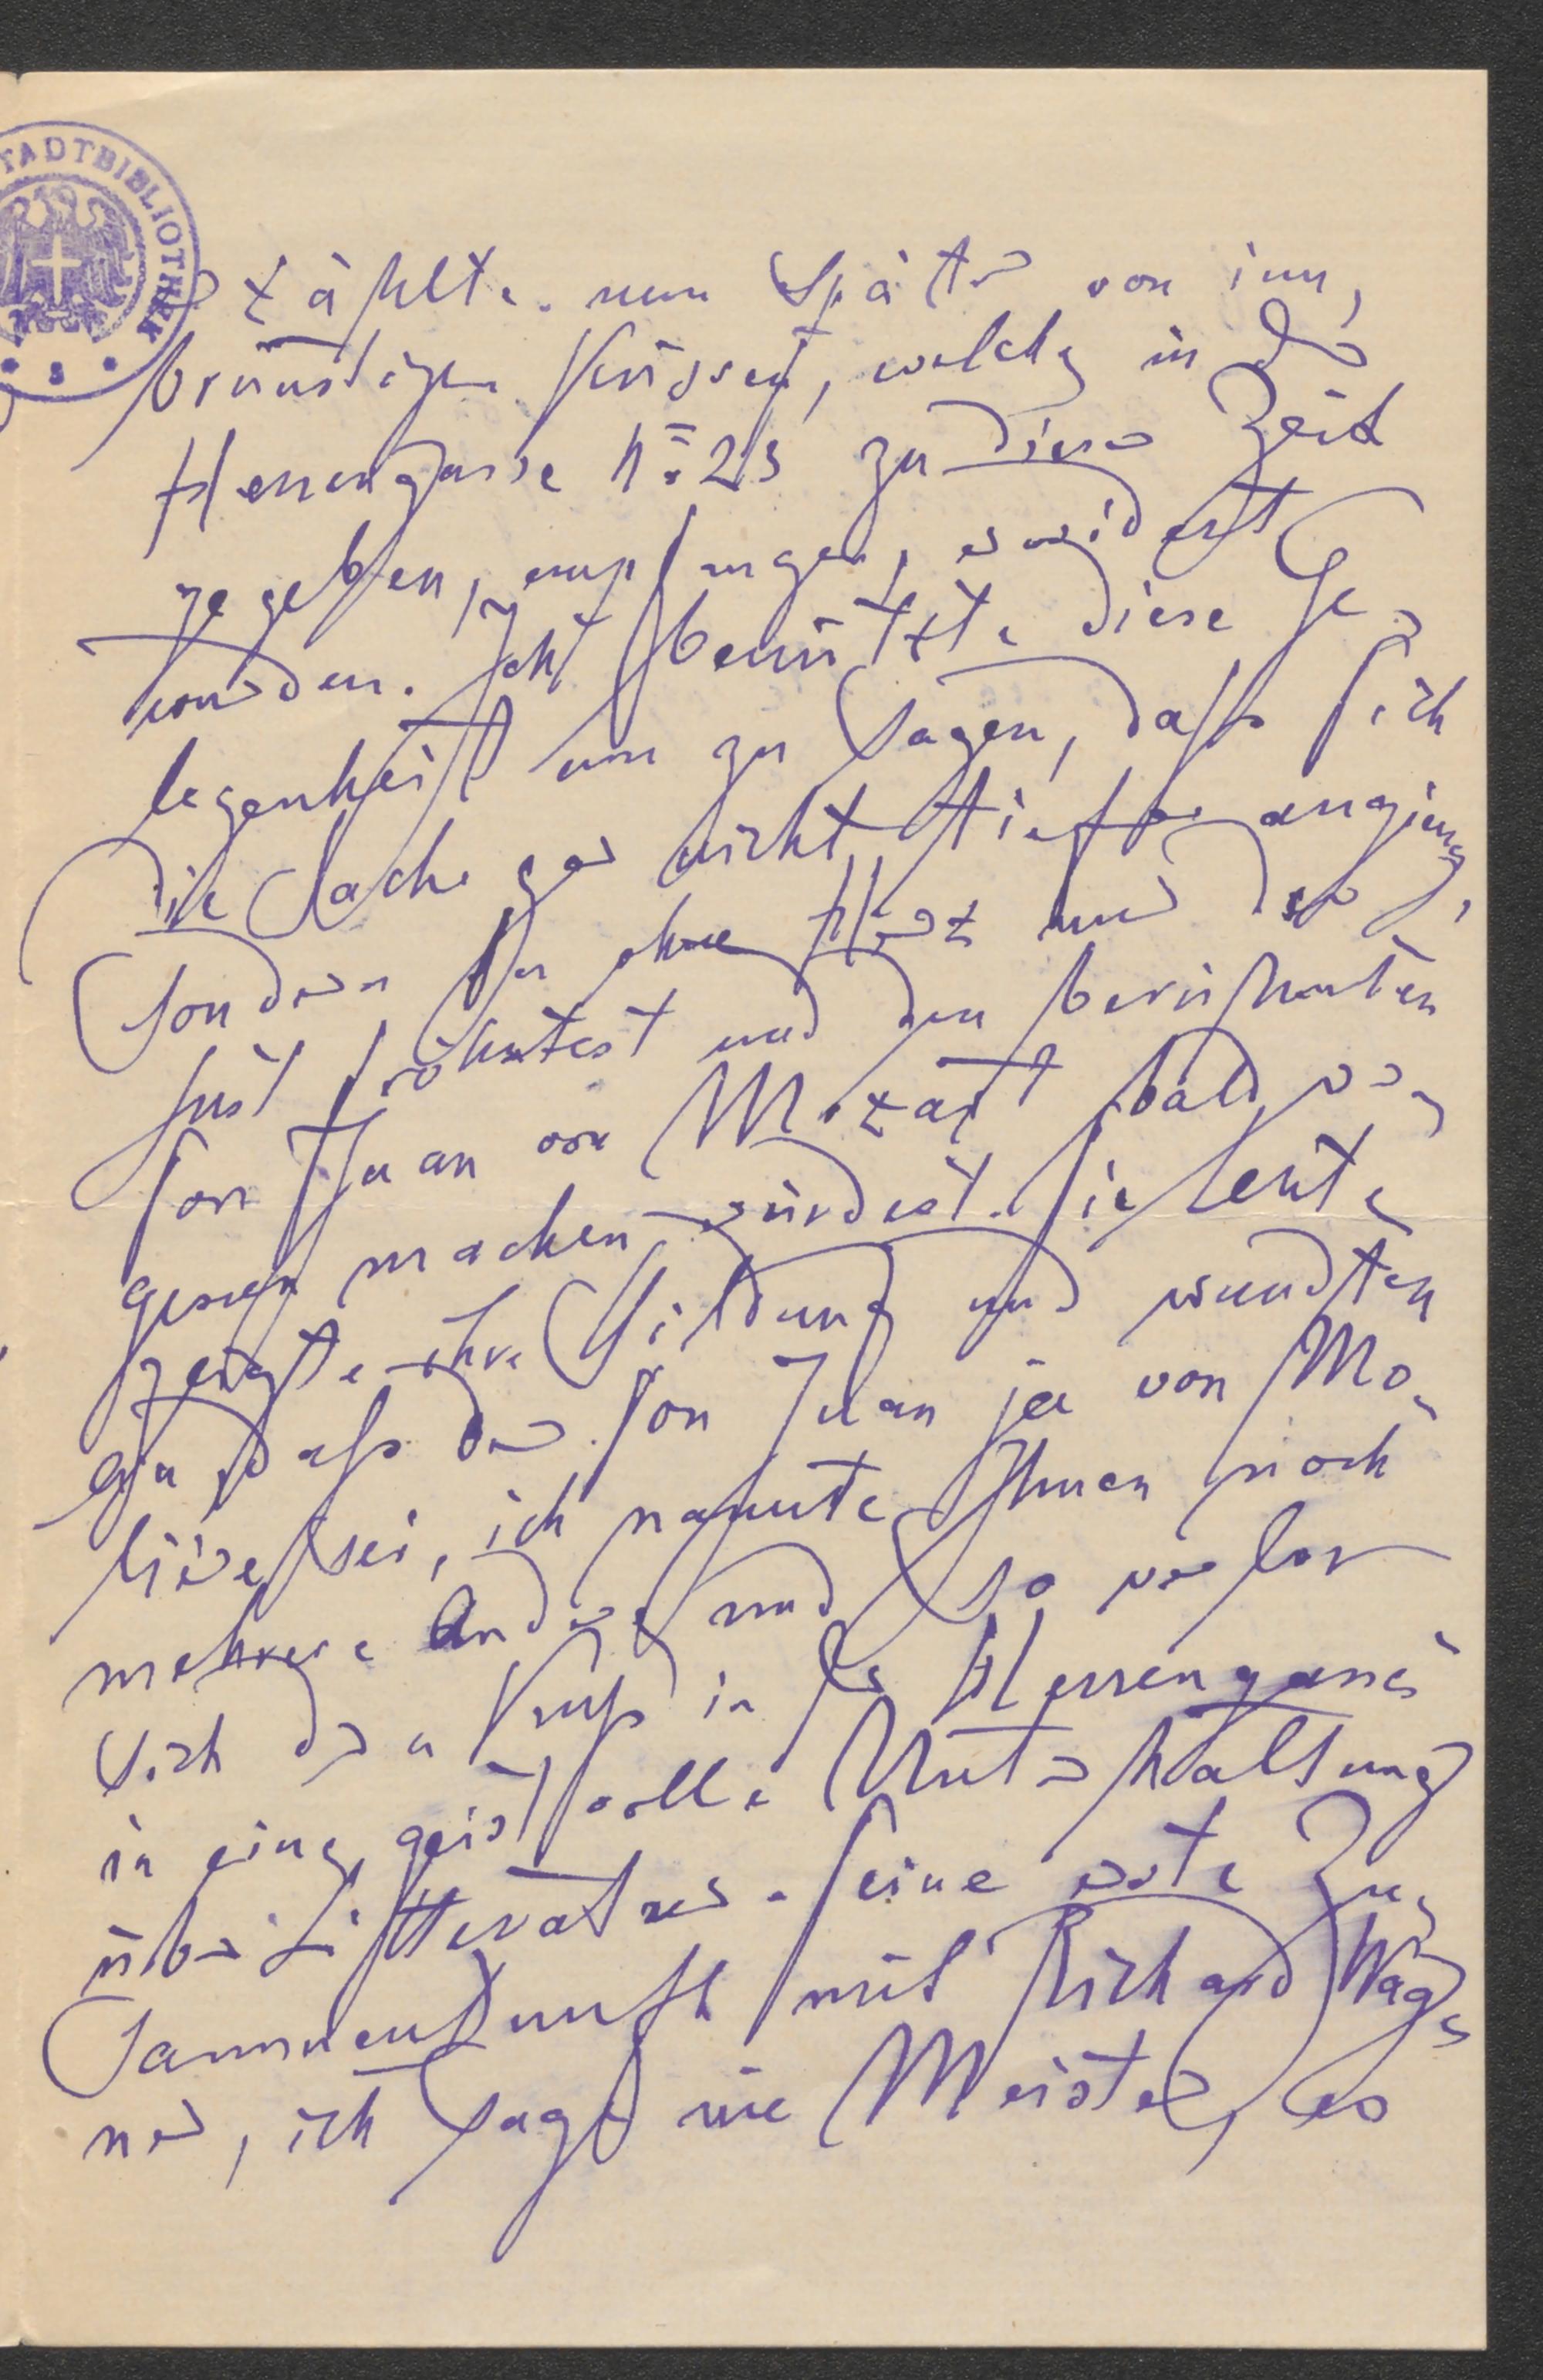 STADTBIBLIOTHEK
S
zählte nun später von inn,
brünstigen Küssen, welche in der
Herrengasse No 23 zu dieser Zeit
gegeben, empfangen, erwidert
wurden. Ich benützte diese Ge-
legenheit um zu sagen, dass Dich
die Sache gar nicht tiefer angieng,
sondern Du ohne Herz und
Lust fröhntest und den berühmten
Don Juan von Mozart bald ver-
gessen machen würdest. Die Leute
zeigte ihre Bildung und wandten
ein dass der Don Juan ja von Mo-
lière sei, ich nannte Ihnen noch
mehrere Andere und so verlor
sich der Kuss in der Herrengasse
in eine geistvolle Unterhaltung
über Litteratur. Deine erste Zu-
sammenkunft mit Richard Wag-
ner, ich sage nie Meister, es